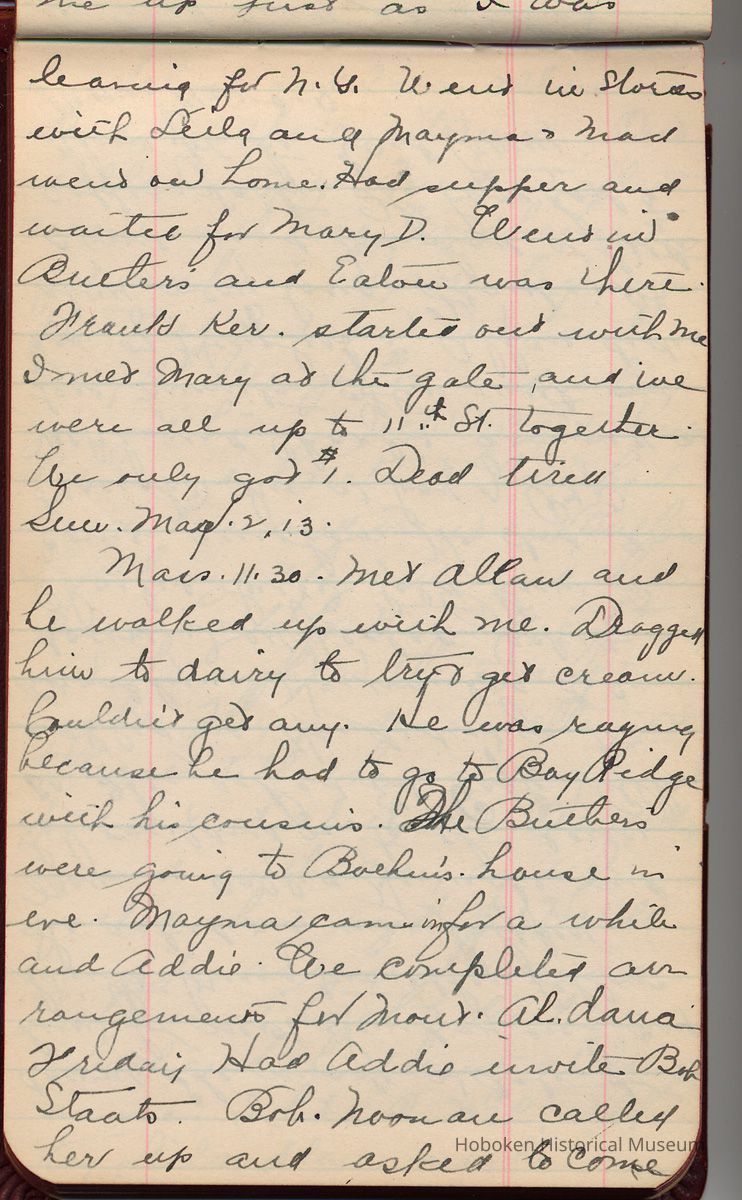 me up just as I was
leaving for N.Y. Went in Stores
with Leila and Mayma & Mad
went on home. Had supper and
waited for Mary D. Went in
and Eaton was there.
Frank Ker. started out with me
I met Mary at the gate, and we
were all up to 11th St. together.
We only got $1. Dead tired
Sun. Mar. 2, 13.
Mass. 11.30. Met Allan and
he walked up with me. Dragged
him to dairy to try & get cream.
Couldn't get any. He was raging
because he had to go to Bay Ridge
with his cousins. The Butlers
were going to house in
eve. Mayma came in for a while
and Addie. We completed arr
rangements for Mont. Al. dance
Friday Had Addie invite Bob
Staats. Bob. Noonan called
her up and asked to come
Hoboken Historical Museum